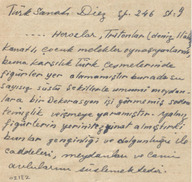 Türk Sanatı Diez sf. 246 st. 9
---- Heroslar, Tritonlar (deniz ilahı)
kanatlı çocuk melekler oynaşıyorlarsa
buna karşılık Türk çeşmelerinde
figürler yer almamıştır burada su
sayısız süslü şekillerle umumi meydan-
lara bir Dekorasyon işi görmemiş sade
temizlik vejesmeye yaramıştır. Yalnız
figürlerin yerini tezyinat almıştır ki
bunlar zenginliği ve dolgunluğu ile
caddeleri, meydanları ve cami
avlularını süslemektedir.